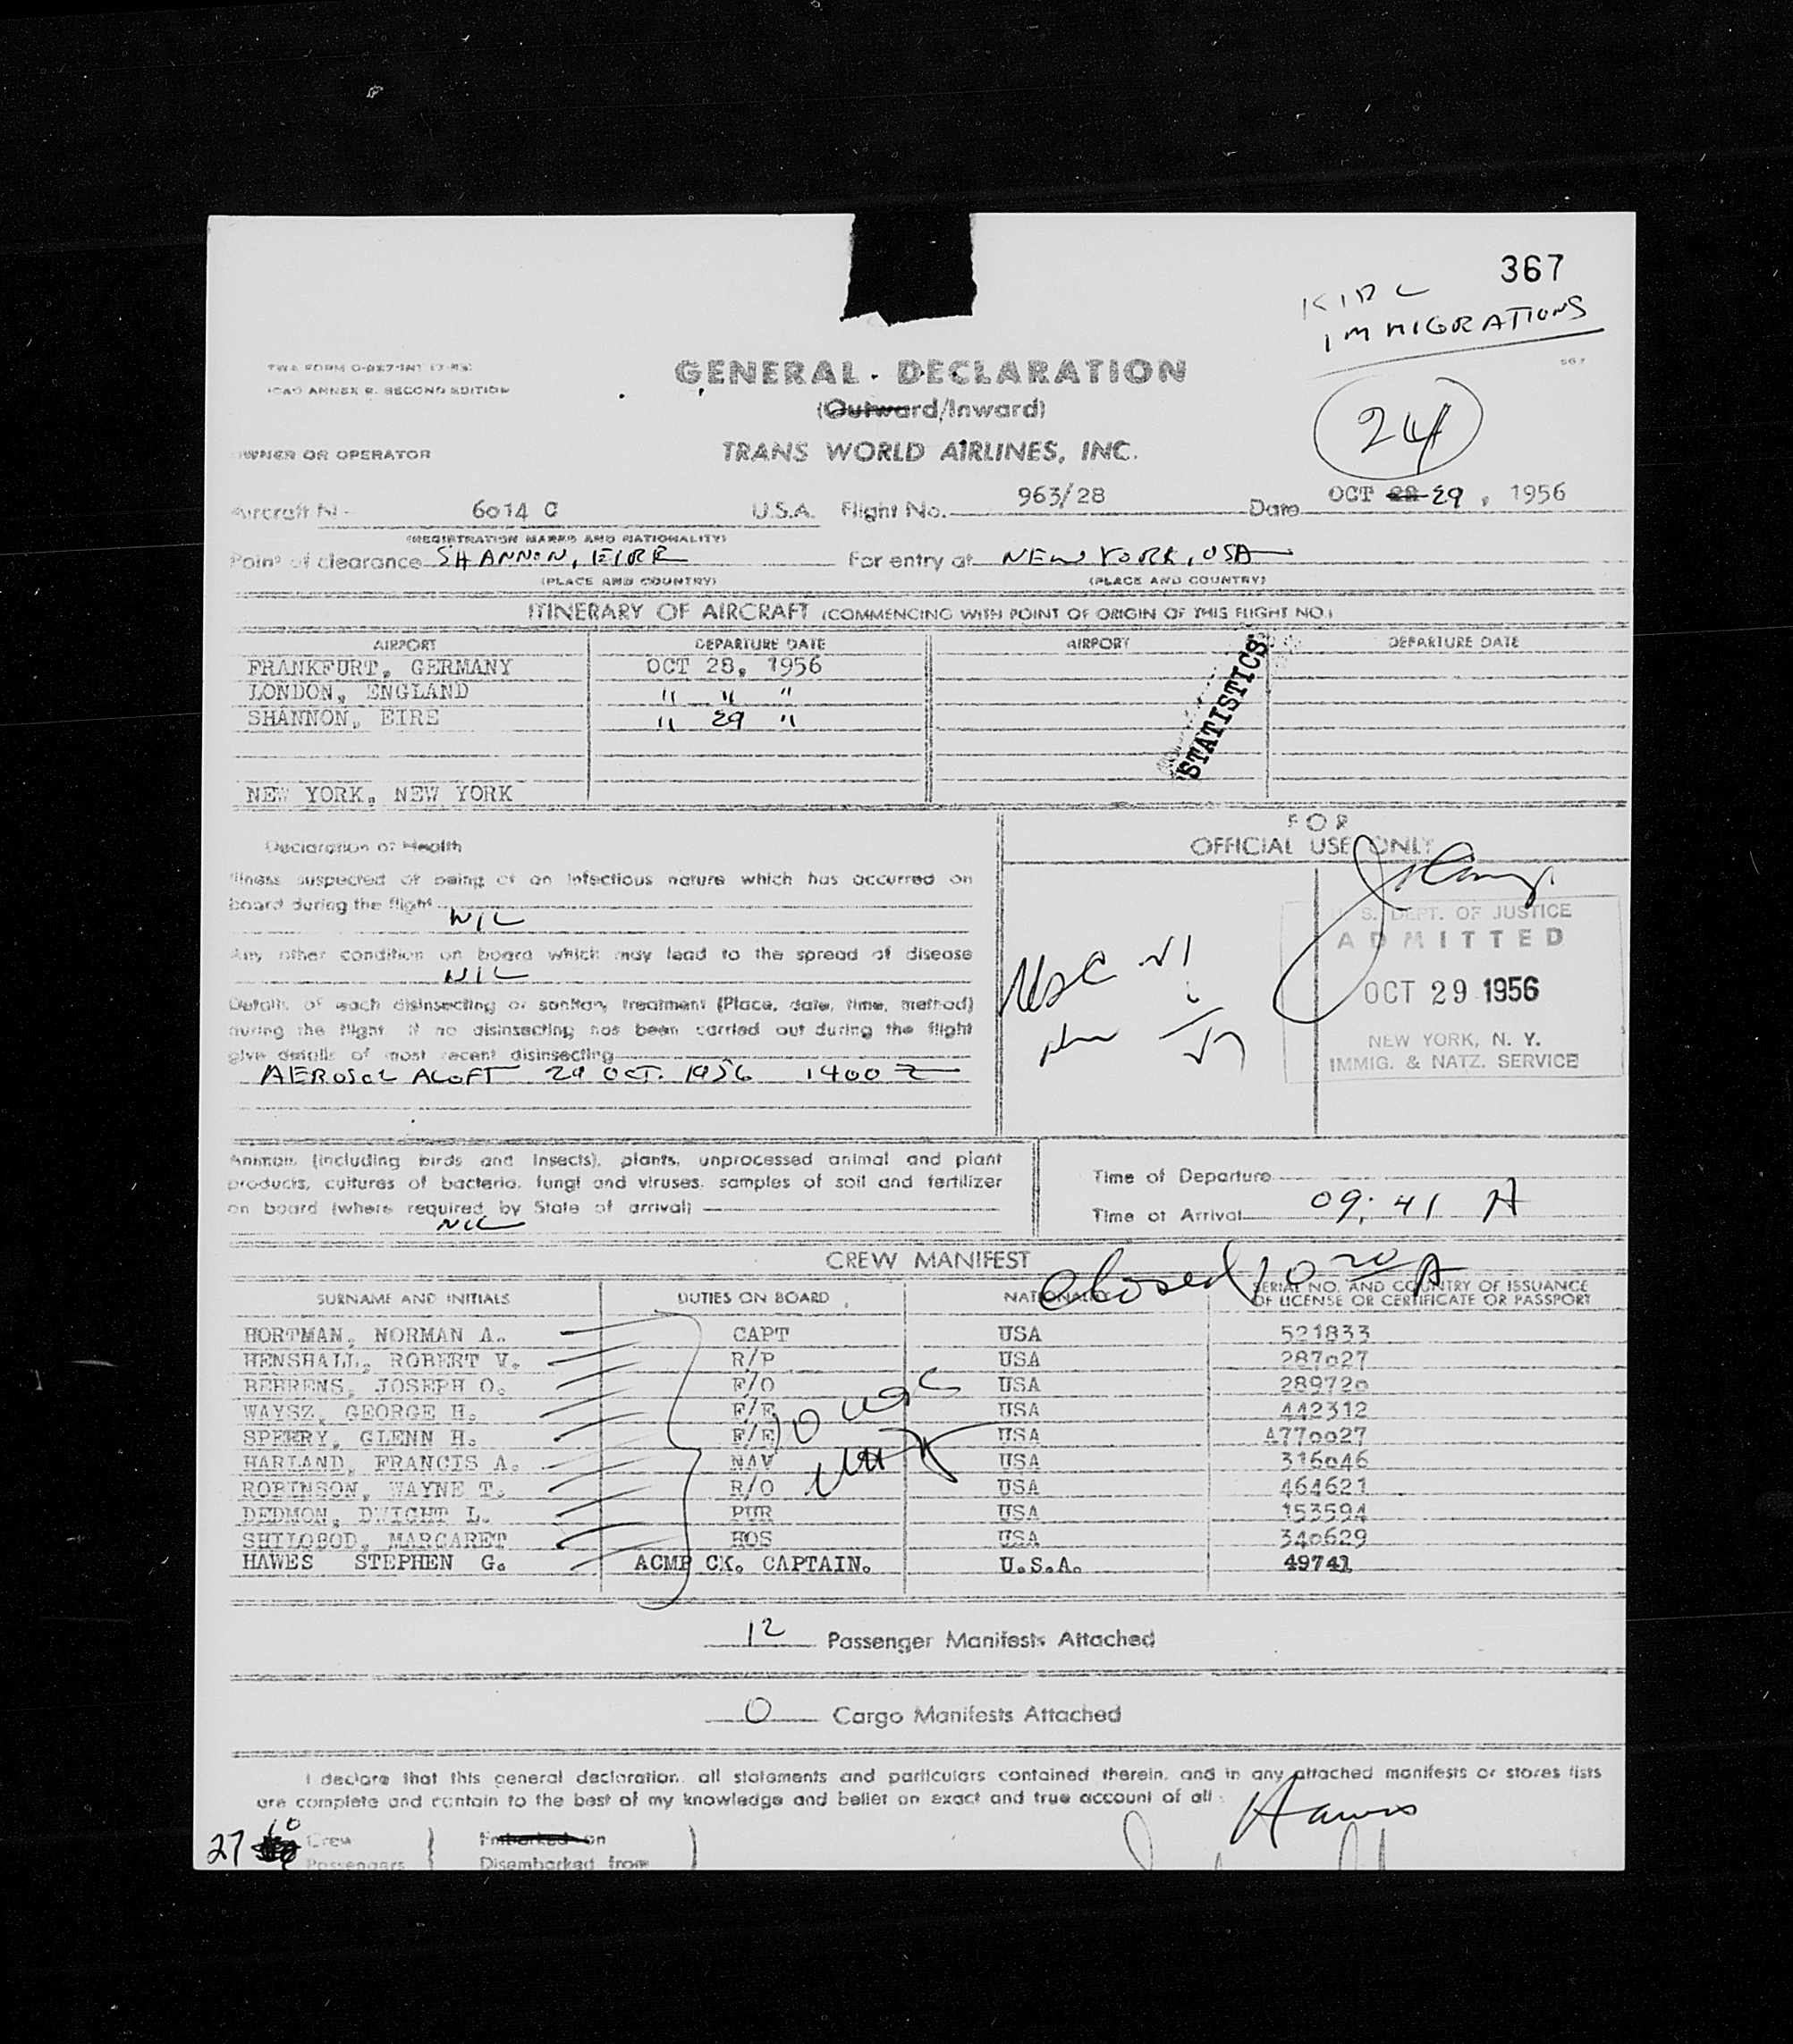 367
IMMIGRATIONS
TWA FORM
ICAO ANNEX 9. SECOND EDITION
GENERAL DECLARATION
(Outward/Inward)
24
OWNER OR OPERATOR TRANS WORLD AIRLINES, INC.
Aircraft N- 6014 C U.S.A. Flight No. 963/28 Date OCT 28 29, 1956
(REGISTRATION MARKS AND NATIONALITY)
Point of clearance SHANNON, EIRE For entry at NEW YORK, USA
(PLACE AND COUNTRY) (PLACE AND COUNTRY)
ITINERARY OF AIRCRAFT (COMMENCING WITH POINT OF ORIGIN OF THIS FLIGHT NO.)
AIRPORT DEPARTURE DATE AIRPORT DEPARTURE DATE
FRANKFURT, GERMANY OCT 28, 1956
LONDON, ENGLAND " " "
SHANNON, EIRE " 29 "
STATISTICS
NEW YORK, NEW YORK
FOR
OFFICIAL USE ONLY
Declaration of Health
Illness suspected of being of an infectious nature which has occurred on
board during the flight
NIL
Any other condition on board which may lead to the spread of disease
NIL
Details of each disinsecting or sanitary treatment (Place, date, time, method)
during the flight. If no disinsecting has been carried out during the flight
give details of most recent disinsecting
AEROSOL ALOFT 29 OCT. 1956 1400 Z
U.S. DEPT. OF JUSTICE
ADMITTED
OCT 29 1956
NEW YORK, N. Y.
IMMIG. & NATZ. SERVICE
Animals (including birds and insects), plants, unprocessed animal and plant
products, cultures of bacteria, fungi and viruses, samples of soil and fertilizer
on board (where required by State of arrival)
NIL
Time of Departure
Time of Arrival 09:41 A
CREW MANIFEST
Closed 10 20 A
SURNAME AND INITIALS DUTIES ON BOARD NATIONALITY SERIAL NO. AND COUNTRY OF ISSUANCE
OF LICENSE OR CERTIFICATE OR PASSPORT
HORTMAN, NORMAN A. CAPT USA 521833
HENSHALL, ROBERT V. R/P USA 287027
BEHRENS, JOSEPH O. F/O USA 289720
WAYSZ, GEORGE H. F/E USA 442312
SPERRY, GLENN H. F/E USA 4770027
HARLAND, FRANCIS A. NAV USA 316046
ROBINSON, WAYNE T. R/O USA 464621
DEDMON, DWIGHT L. PUR USA 153594
SHILOSOD, MARGARET HOS USA 340629
HAWES STEPHEN G. ACMP CK. CAPTAIN. U.S.A. 49741
10 USC
12 Passenger Manifests Attached
0 Cargo Manifests Attached
I declare that this general declaration, all statements and particulars contained therein, and in any attached manifests or stores lists
are complete and contain to the best of my knowledge and belief an exact and true account of all
Hawes
10 Crew Embarked on
27 Passengers Disembarked from